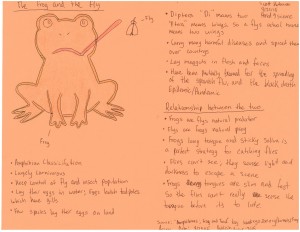 The Frog and The Fly
Fly
Frog
• Amphibian Classification
• Largely Carnivorous
• Pest control of fly and insect population
• Lay their eggs in water; Eggs hatch tadpoles
which have gills.
• Few species lay their eggs on land
• Diptera "Di" means two
"Ptera" means wings so a fly's actual name
means two wings
• Carry many harmful diseases and spread them
over countries
• Lay maggots in flesh and feces
• Have been probably blamed for the spreading
of the spanish flu and the black death
Epidemic/Pandemic
Relationship between the two
• Frogs are flys natural predator
• Flys are frogs natural prey
• Frogs long tongue and sticky saliva is
a perfect strategy for catching flies
• Flies can't see, they sense light and
darkness to escape a scene
• Frogs tongues are slim and fast
so the flies can't really sense the
tongue before its to late.